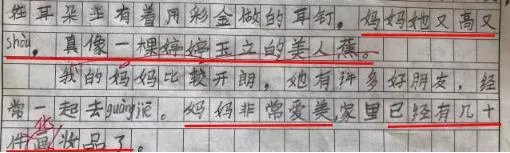 在耳朵上有着用彩金做的耳钉。妈妈她又高又
shòu。真像一棵婷婷玉立的美人蕉。
我的妈妈比较开朗。她有许多好朋友，经
常一起去guàng jiē。妈妈非常爱美，家里已经有几十
化
件画妆品了。